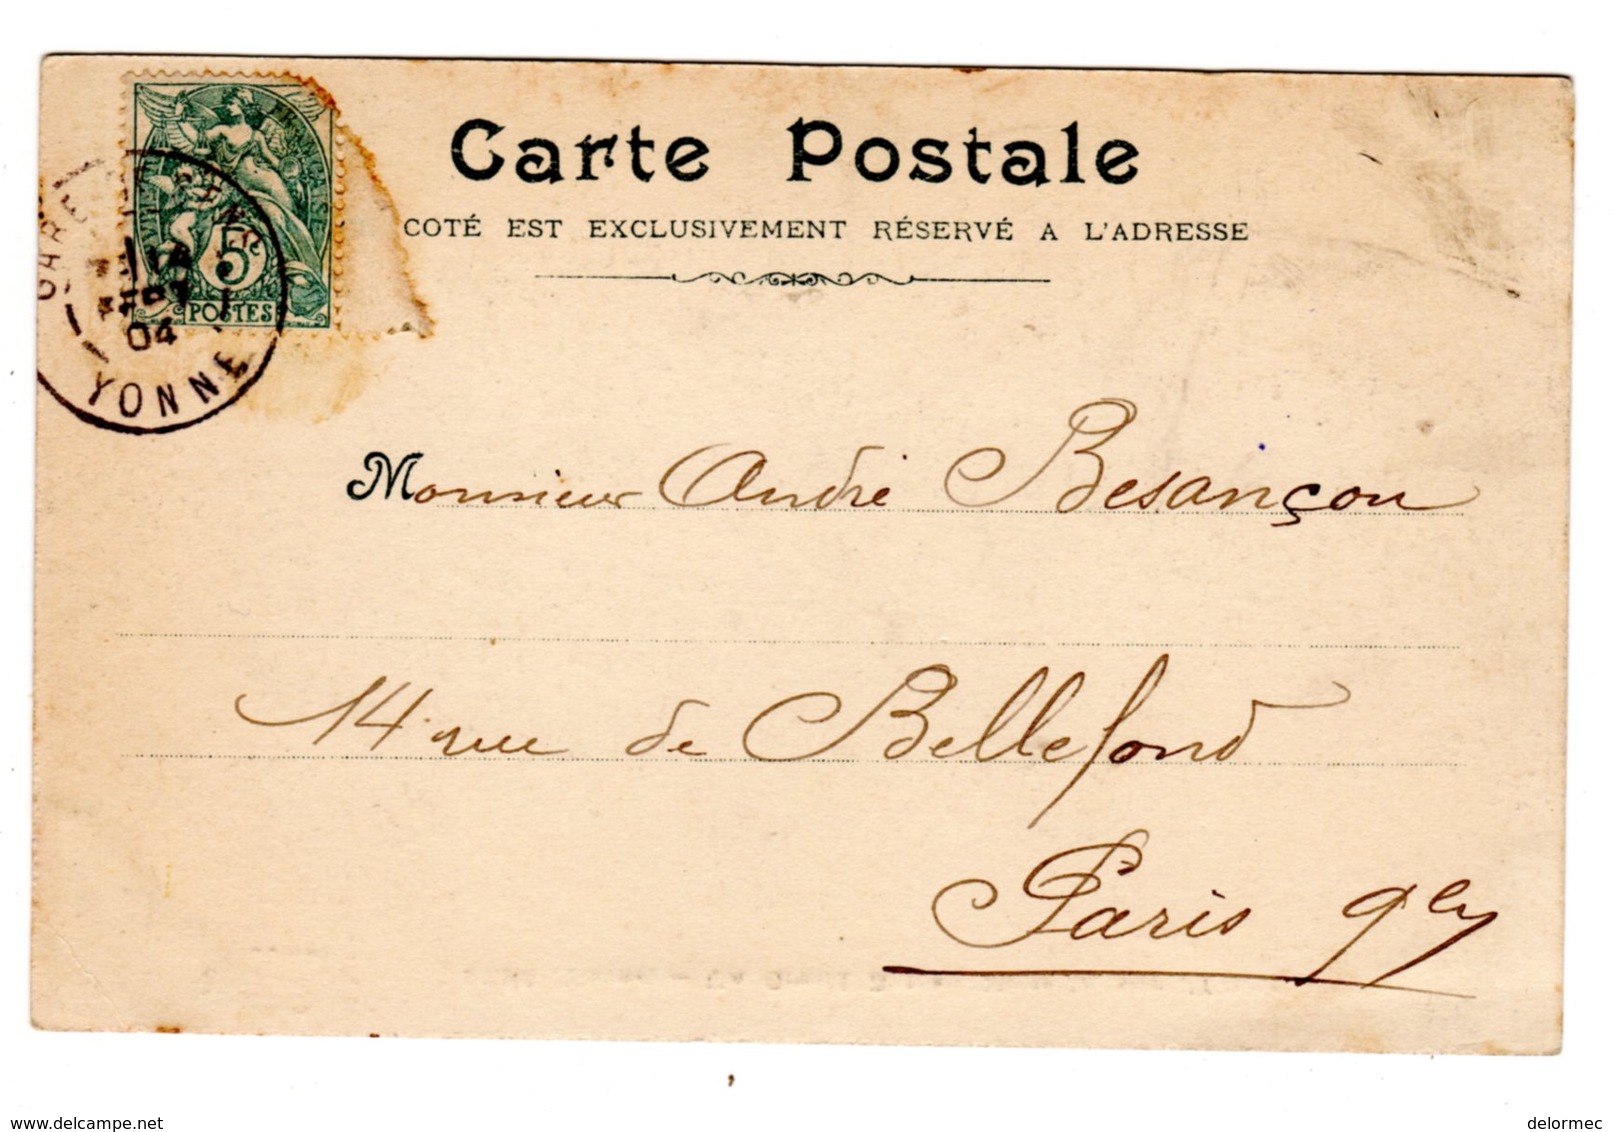 Carte Postale
COTÉ EST EXCLUSIVEMENT RÉSERVÉ A L'ADRESSE
5c
POSTES
GARE
04
YONNE
Monsieur André Besançon
14 rue de Bellefond
Paris 9e
© www.delcampe.net
delormec